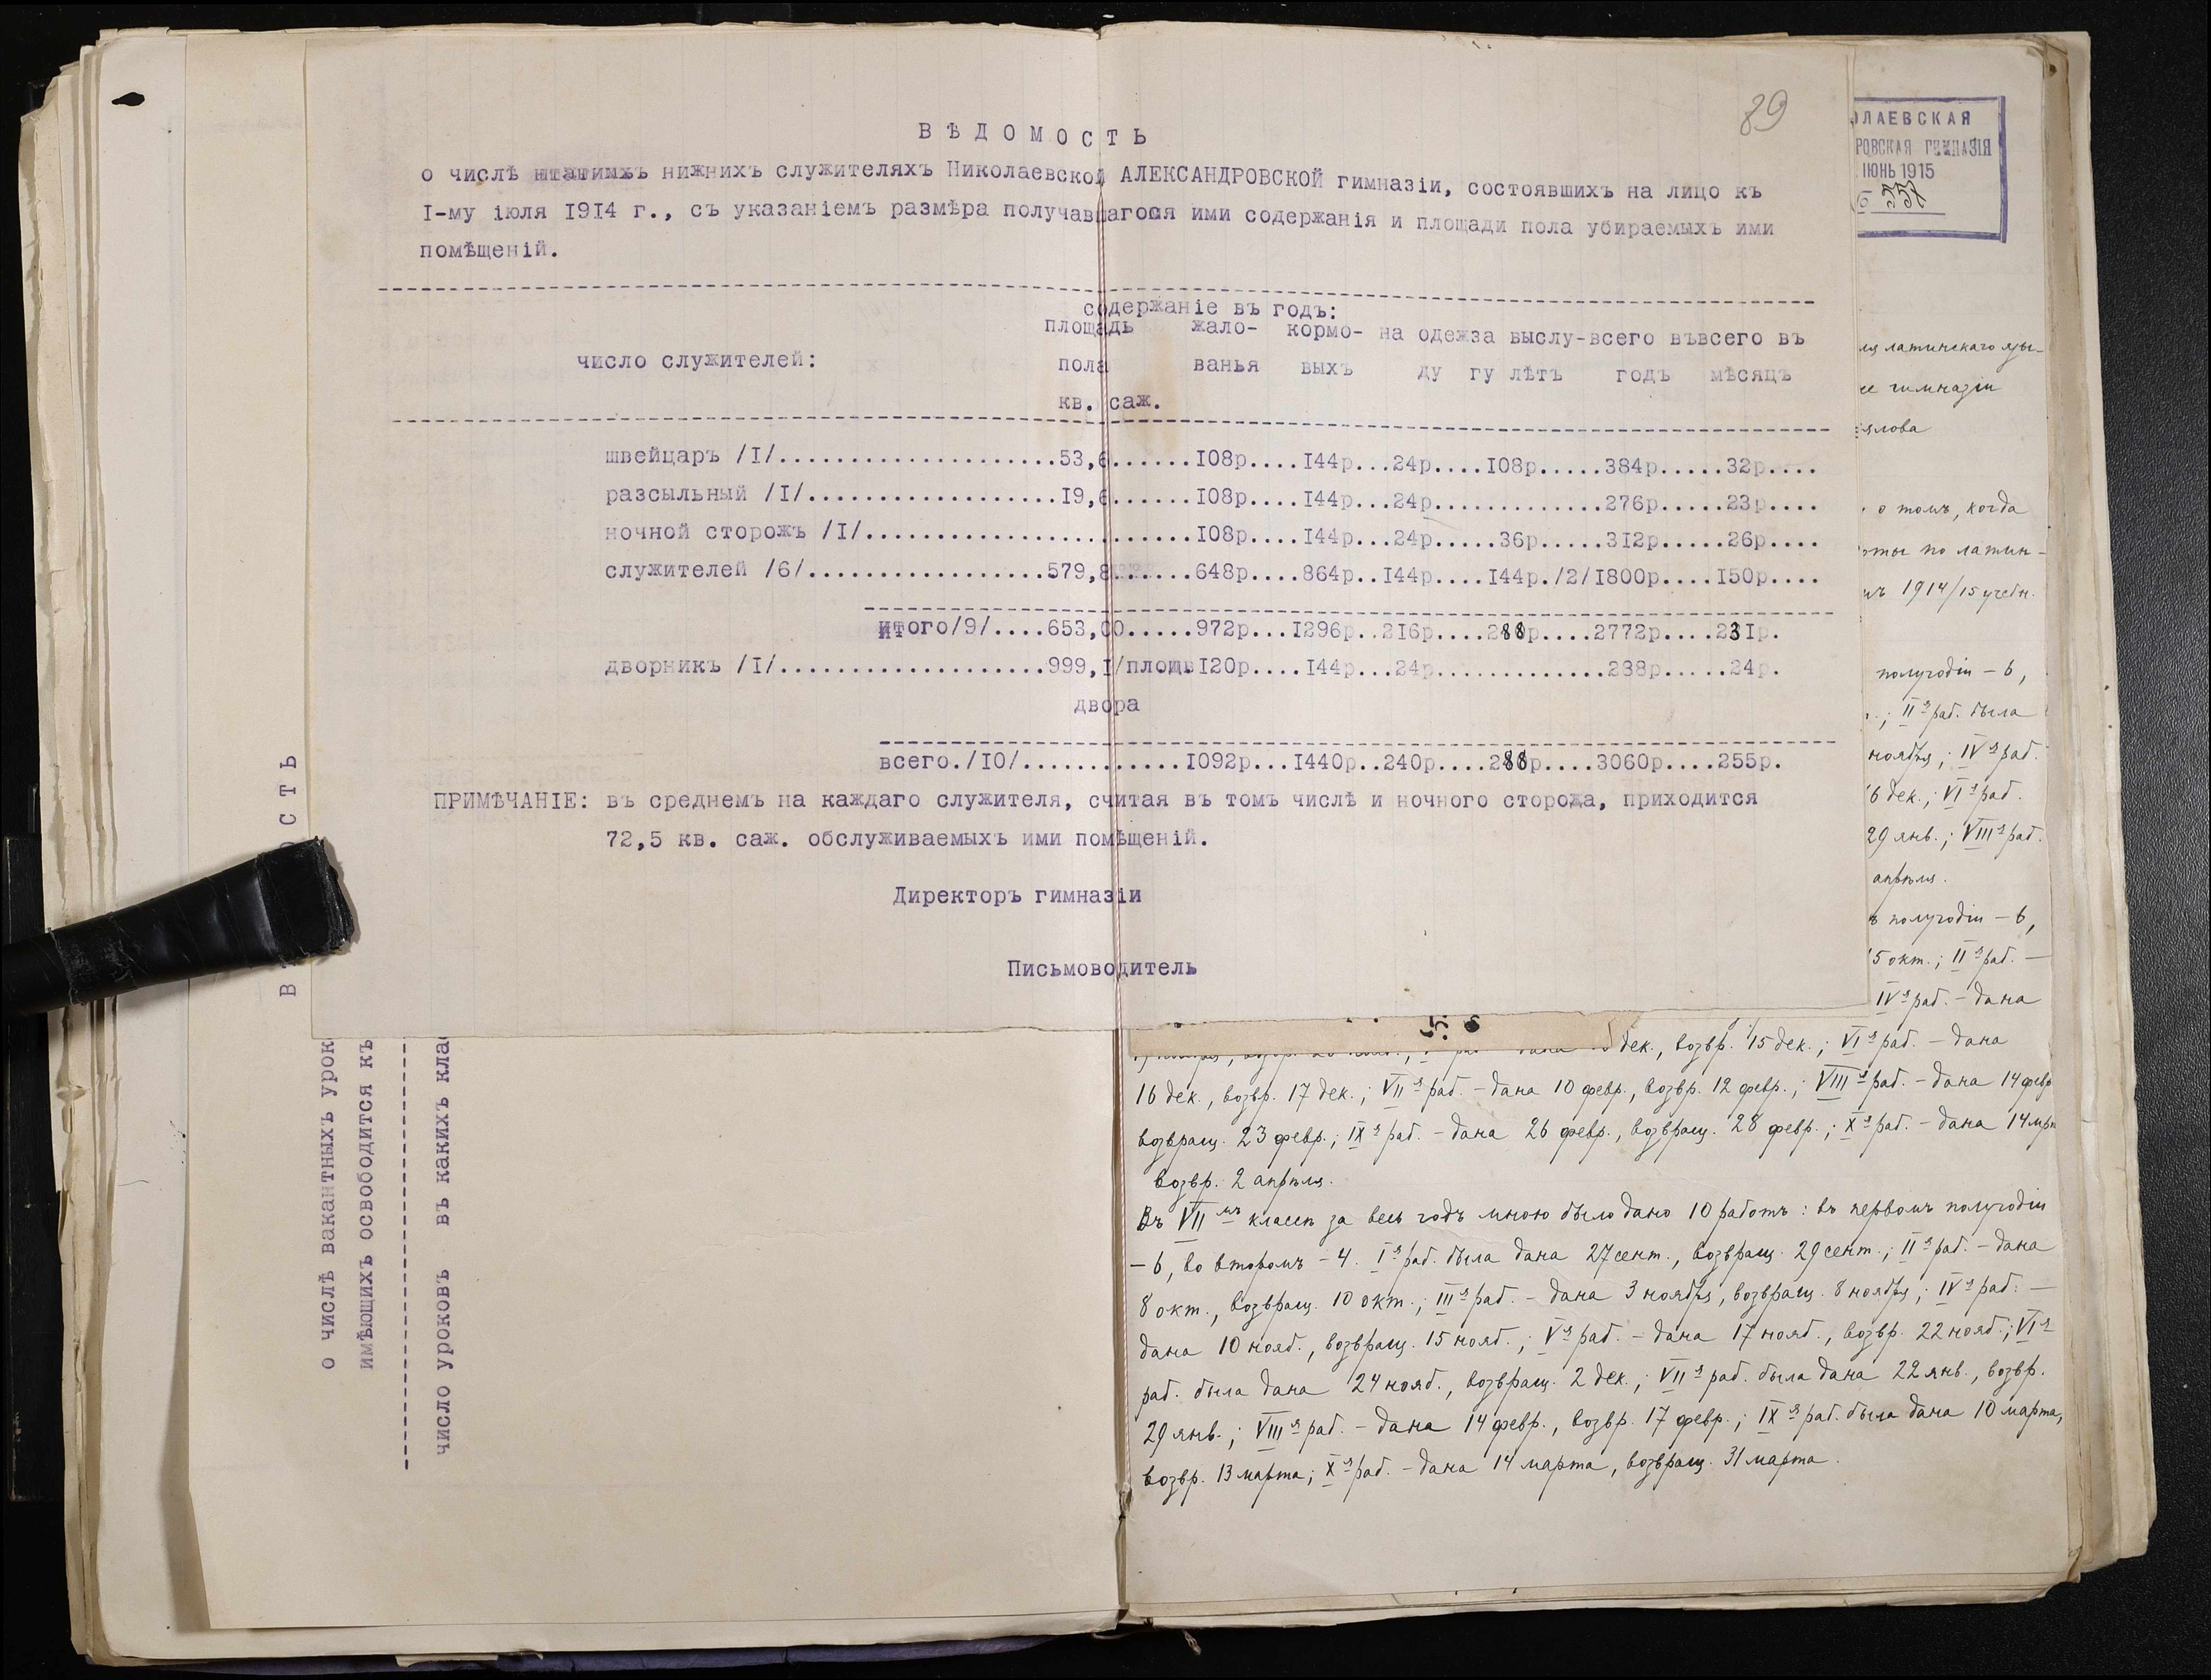 89
ВѢДОМОСТЬ
о числѣ штатныхъ нижнихъ служителяхъ Николаевской АЛЕКСАНДРОВСКОЙ гимназіи, состоявшихъ на лицо къ
I-му іюля I9I4 г., съ указаніемъ размѣра получавшагося ими содержанія и площади пола убираемыхъ ими
помѣщеній.
содержаніе въ годъ:
площадь жало- кормо- на одежза выслу-всего въвсего въ
число служителей: пола ванья выхъ ду гу лѣтъ годъ мѣсяцъ
кв. саж.
швейцаръ /I/....................53,6......I08р....I44р...24р....I08р.....384р.....32р....
разсыльный /I/..................I9,6......I08р....I44р...24р............276р.....23р....
ночной сторожъ /I/.......................I08р....I44р...24р.....36р.....3I2р.....26р....
служителей /6/.................579,8......648р....864р..I44р....I44р./2/I800р....I50р....
итого/9/....653,00.....972р...I296р..2I6р....288р....2772р....23Iр.
дворникъ /I/...................999,I/площьI20р....I44р...24р............288р.....24р.
двора
всего./I0/............I092р...I440р..240р....288р....3060р....255р.
ПРИМѢЧАНІЕ: въ среднемъ на каждаго служителя, считая въ томъ числѣ и ночного сторожа, приходится
72,5 кв. саж. обслуживаемыхъ ими помѣщеній.
Директоръ гимназіи
Письмоводитель
о числѣ вакантныхъ урок
имѣющихъ освободится къ
число уроковъ въ какихъ кла
ОЛАЕВСКАЯ
РОВСКАЯ ГИМНАЗІЯ
ІЮНЬ 1915
557
латинскаго язы-
гимназіи
о томъ, когда
по латин-
1914/15 учебн.
полугодіи – 6,
IIя раб. была
ноября; IVя раб.
6 дек.; VIя раб.
29 янв.; VIIIя раб.
апрѣля.
полугодіи – 6,
5 окт.; IIя раб. –
IVя раб. – дана
дек., возвр. 15 дек.; VIя раб. – дана
16 дек., возвр. 17 дек.; VIIя раб. – дана 10 февр., возвр. 12 февр.; VIIIя раб. – дана 14 февр
возвращ. 23 февр.; IXя раб. – дана 26 февр., возвращ. 28 февр.; Xя раб. – дана 14 мрт
возвр. 2 апрѣля.
Въ VIIмъ классѣ за весь годъ мною было дано 10 работъ: въ первомъ полугодіи
– 6, во второмъ – 4. Iя раб. была дана 27 сент., возвращ. 29 сент.; IIя раб. – дана
8 окт., возвращ. 10 окт.; IIIя раб. – дана 3 ноября, возвращ. 8 ноября; IVя раб. –
дана 10 нояб., возвращ. 15 нояб.; Vя раб. – дана 17 нояб., возвр. 22 нояб.; VIя
раб. была дана 24 нояб., возвращ. 2 дек.; VIIя раб. была дана 22 янв., возвр.
29 янв.; VIIIя раб. – дана 14 февр., возвр. 17 февр.; IXя раб. была дана 10 марта,
возвр. 13 марта; Xя раб. – дана 14 марта, возвращ. 31 марта.